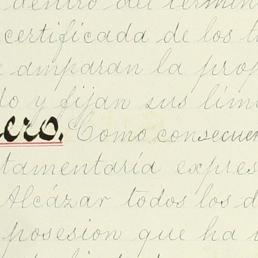 dentro del término
certificada de los t
amparan la prop
do y fijan sus lím
ero. Como consecuen
tamentaría expres
Alcázar todos los d
posesion que ha